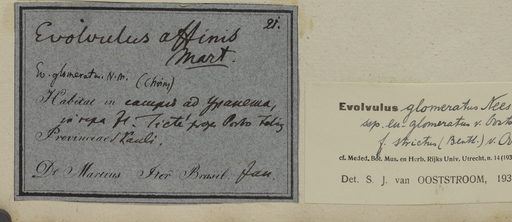 21.
Evolvulus affinis
Mart.
Ev. glomeratus N. M. (Chois)
Habitat in campis ad Ypanema,
in ripa Fl. Tieté prope Porto Feliz
Provinciae S. Pauli.
Dr. Martius Iter Brasil. Jan.
Evolvulus glomeratus Nees
ssp. eu-glomeratus v. Oostr
f. strictus (Benth.) v. Oo
cf. Meded. Bot. Mus. en Herb. Rijks Univ. Utrecht, n. 14 (193
Det. S. J. van OOSTSTROOM, 193